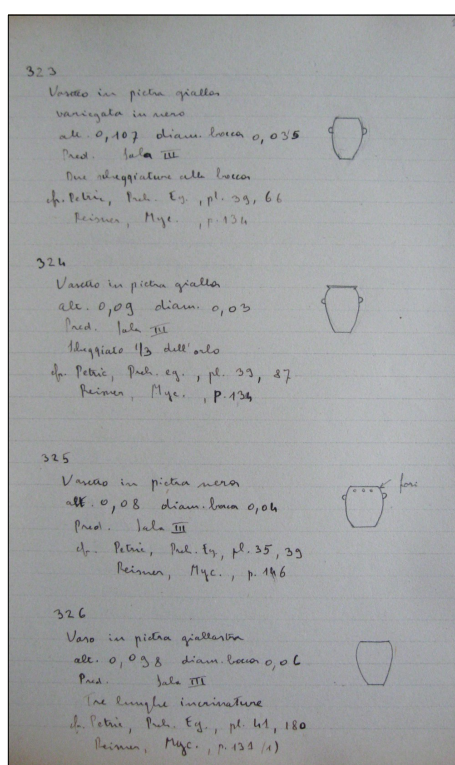 323
Vasetto in pietra gialla
variegata in nero
alt. 0,107 diam. bocca 0,035
Pred. Sala III
Due sbeggiature alla bocca
cfr. Petrie, Preh. Eg., pl. 39, 66
Reisner, Myc., p. 134
324
Vasetto in pietra gialla
alt. 0,09 diam. 0,03
Pred. Sala III
Sbeggiato 1/3 dell'orlo
cfr. Petrie, Preh. eg., pl. 39, 87
Reisner, Myc., p. 134
325
Vasetto in pietra nera
alt. 0,08 diam. bocca 0,04
fori
Pred. Sala III
cfr. Petrie, Preh. Eg., pl. 35, 39
Reisner, Myc., p. 146
326
Vaso in pietra giallastra
alt. 0,098 diam. bocca 0,06
Pred. Sala III
Tre lunghe incrinature
cfr. Petrie, Preh. Eg., pl. 41, 180
Reisner, Myc., p. 139 /1)